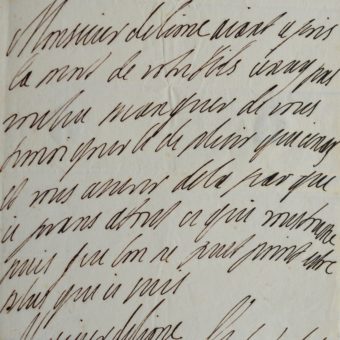 Monsieur de lionne aiant apris
la mort de votre fils ie nay pas
voulu manquer de vous
temoigner le de plesir que ien ay
et vous assurer de la par que
ie prans atout ce qui vous touche
puis que lon ne peut point estre
plus que ie suis
Monsieur de lionne